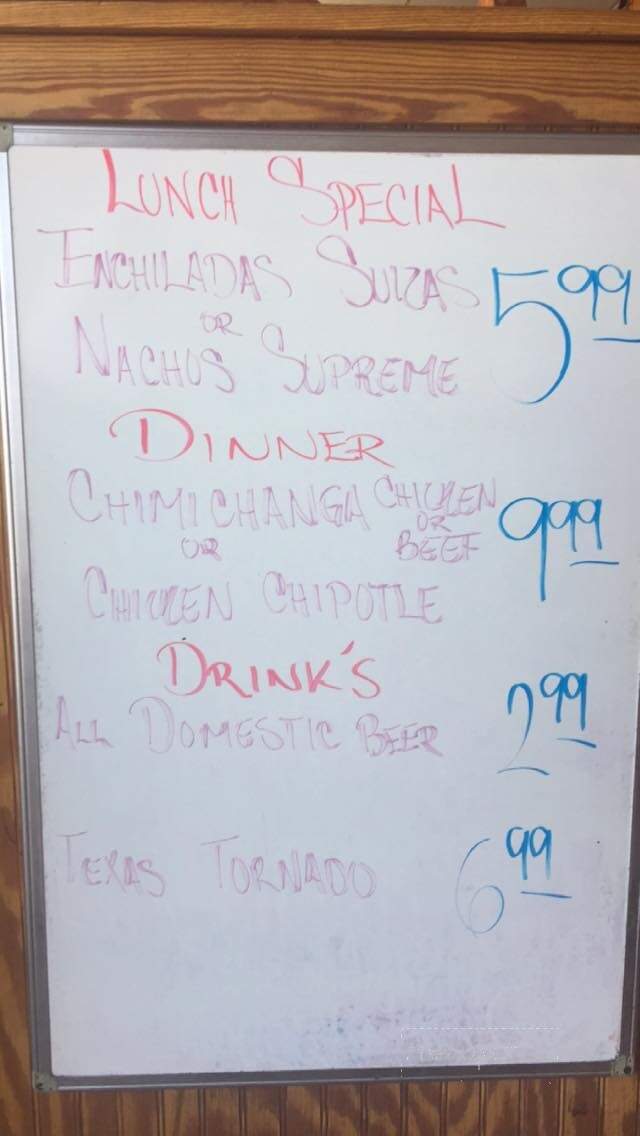 LUNCH SPECIAL
ENCHILADAS SUIZAS 5.99
OR
NACHOS SUPREME
DINNER
CHIMICHANGA CHICKEN OR BEEF 9.99
OR
CHICKEN CHIPOTLE
DRINK'S
ALL DOMESTIC BEER 2.99
TEXAS TORNADO 6.99